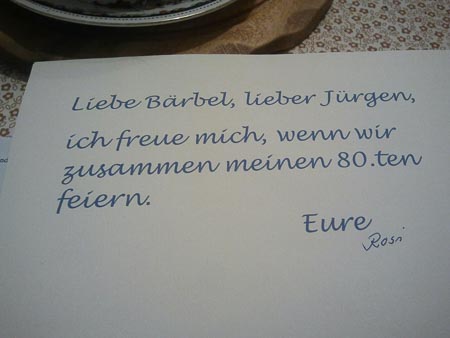 Liebe Bärbel, lieber Jürgen,
ich freue mich, wenn wir
zusammen meinen 80.ten
feiern.
Eure
Rosi